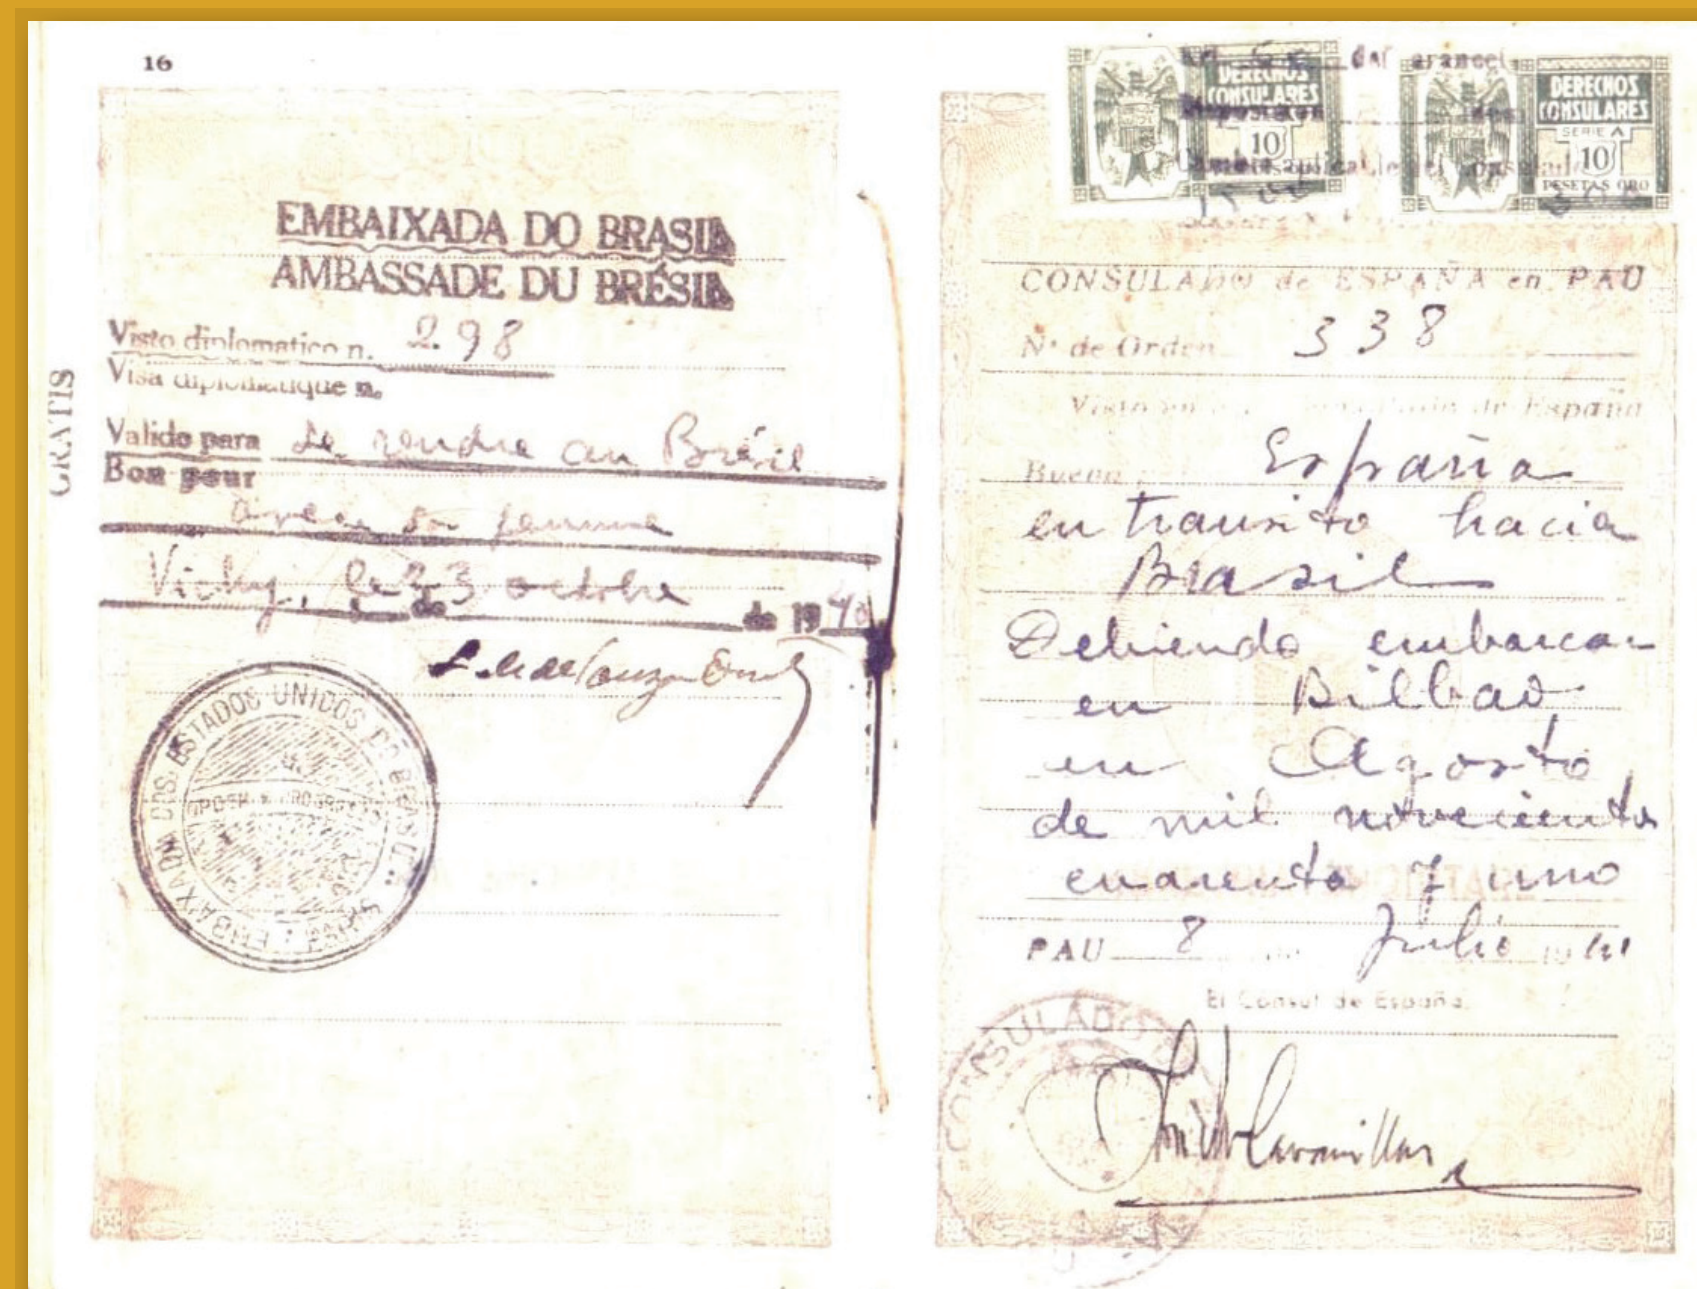 16
EMBAIXADA DO BRASIL
AMBASSADE DU BRÉSIL
Visto diplomatico n. 298
Visa diplomatique n.
GRATIS
Valido para se rendre au Brésil
Bon pour
avec sa femme
Vichy, le 23 octobre de 1940
L. M. de Souza Dantas
EMBAIXADA DOS ESTADOS UNIDOS DO BRASIL
del arancel
DERECHOS
CONSULARES
10
DERECHOS
CONSULARES
SERIE A
10
PESETAS ORO
CONSULADO de ESPAÑA en PAU
Nº de Orden 338
Visto en de España
Bueno España
en transito hacia
Brasil
Debiendo embarcar
en Bilbao
en Agosto
de mil novecientos
cuarenta y uno
PAU 8 Julio 1941
El Consul de España
CONSULADO